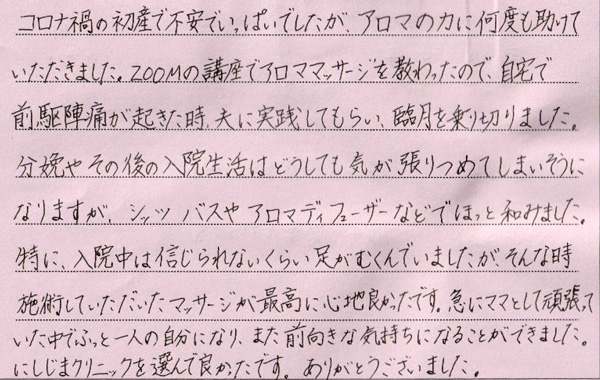 コロナ禍の初産で不安でいっぱいでしたが、アロマの力に何度も助けて
いただきました。ZOOMの講座でアロママッサージを教わったので、自宅で
前駆陣痛が起きた時、夫に実践してもらい、臨月を乗り切りました。
分娩やその後の入院生活はどうしても気が張りつめてしまいそうに
なりますが、シッツバスやアロマディフューザーなどでほっと和みました。
特に、入院中は信じられないくらい足がむくんでいましたが、そんな時
施術していただいたマッサージが最高に心地良かったです。急にママとして頑張って
いた中でふっと一人の自分になり、また前向きな気持ちになることができました。
にしじまクリニックを選んで良かったです。ありがとうございました。